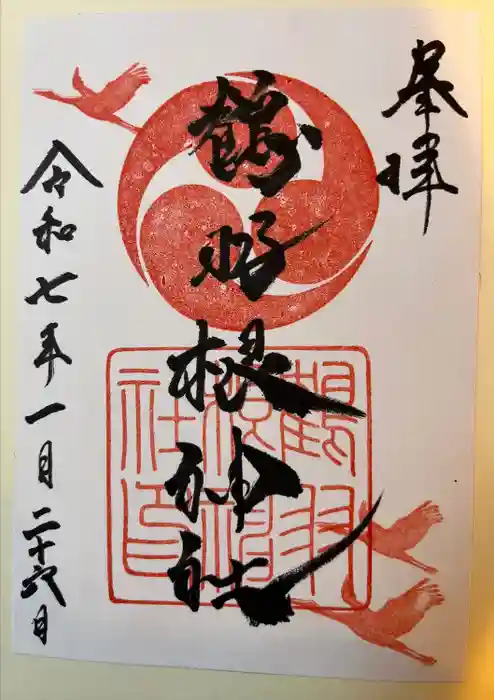 奉拝
鶴羽根神社
令和七年一月二十六日
鶴羽
根神
社印